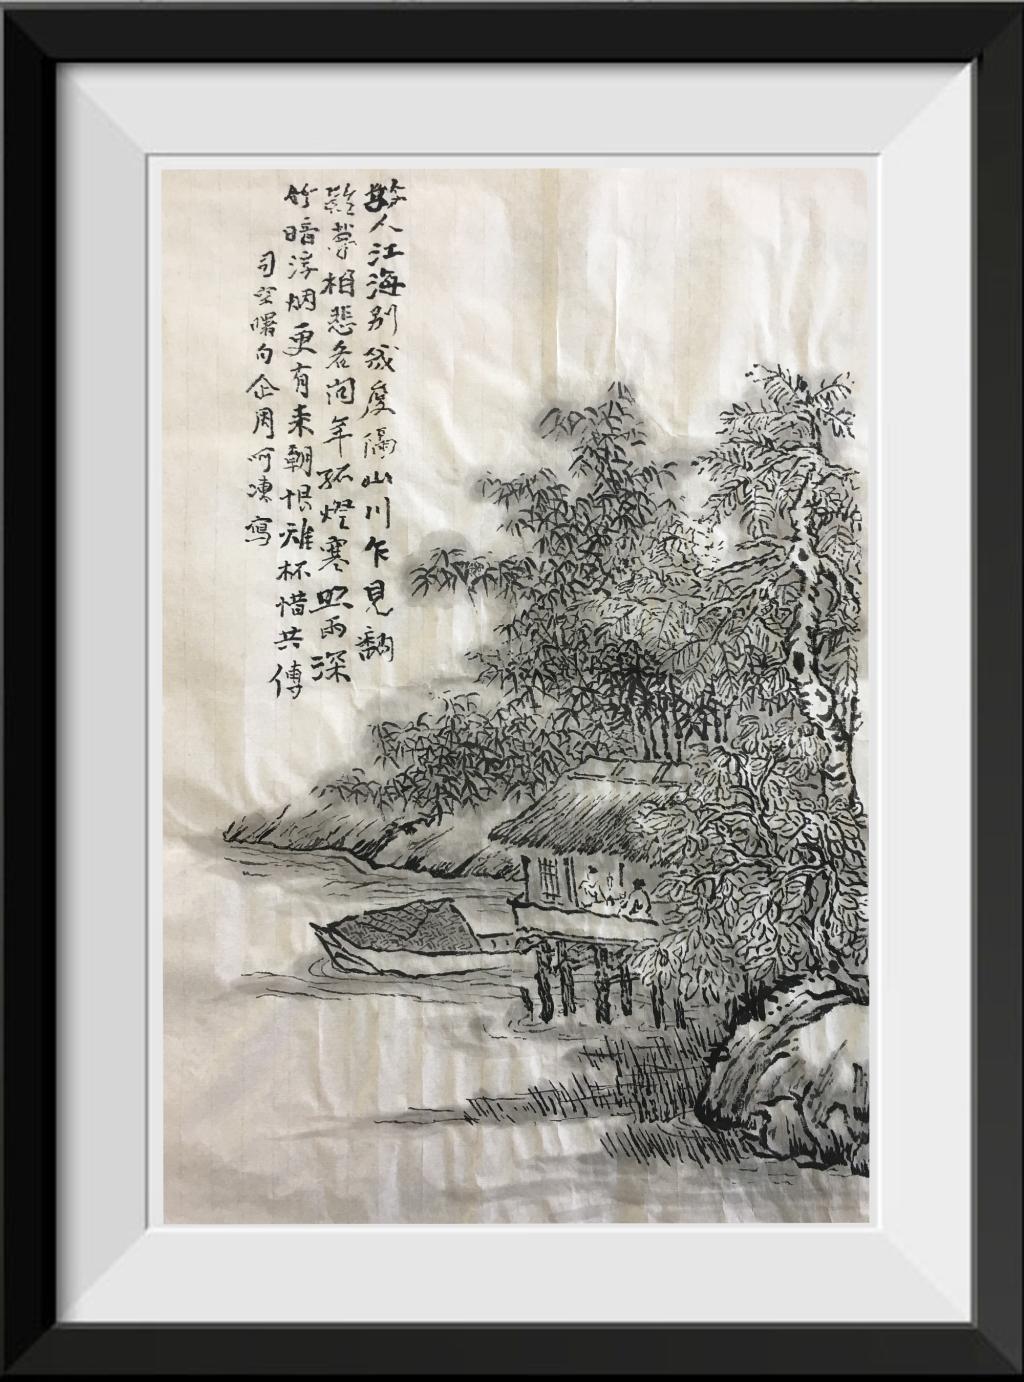 故人江海别幾度隔山川乍見翻
疑夢相悲各问年孤燈寒照雨深
竹暗浮烟更有来朝恨離杯惜共傳
司空曙句企周呵凍寫